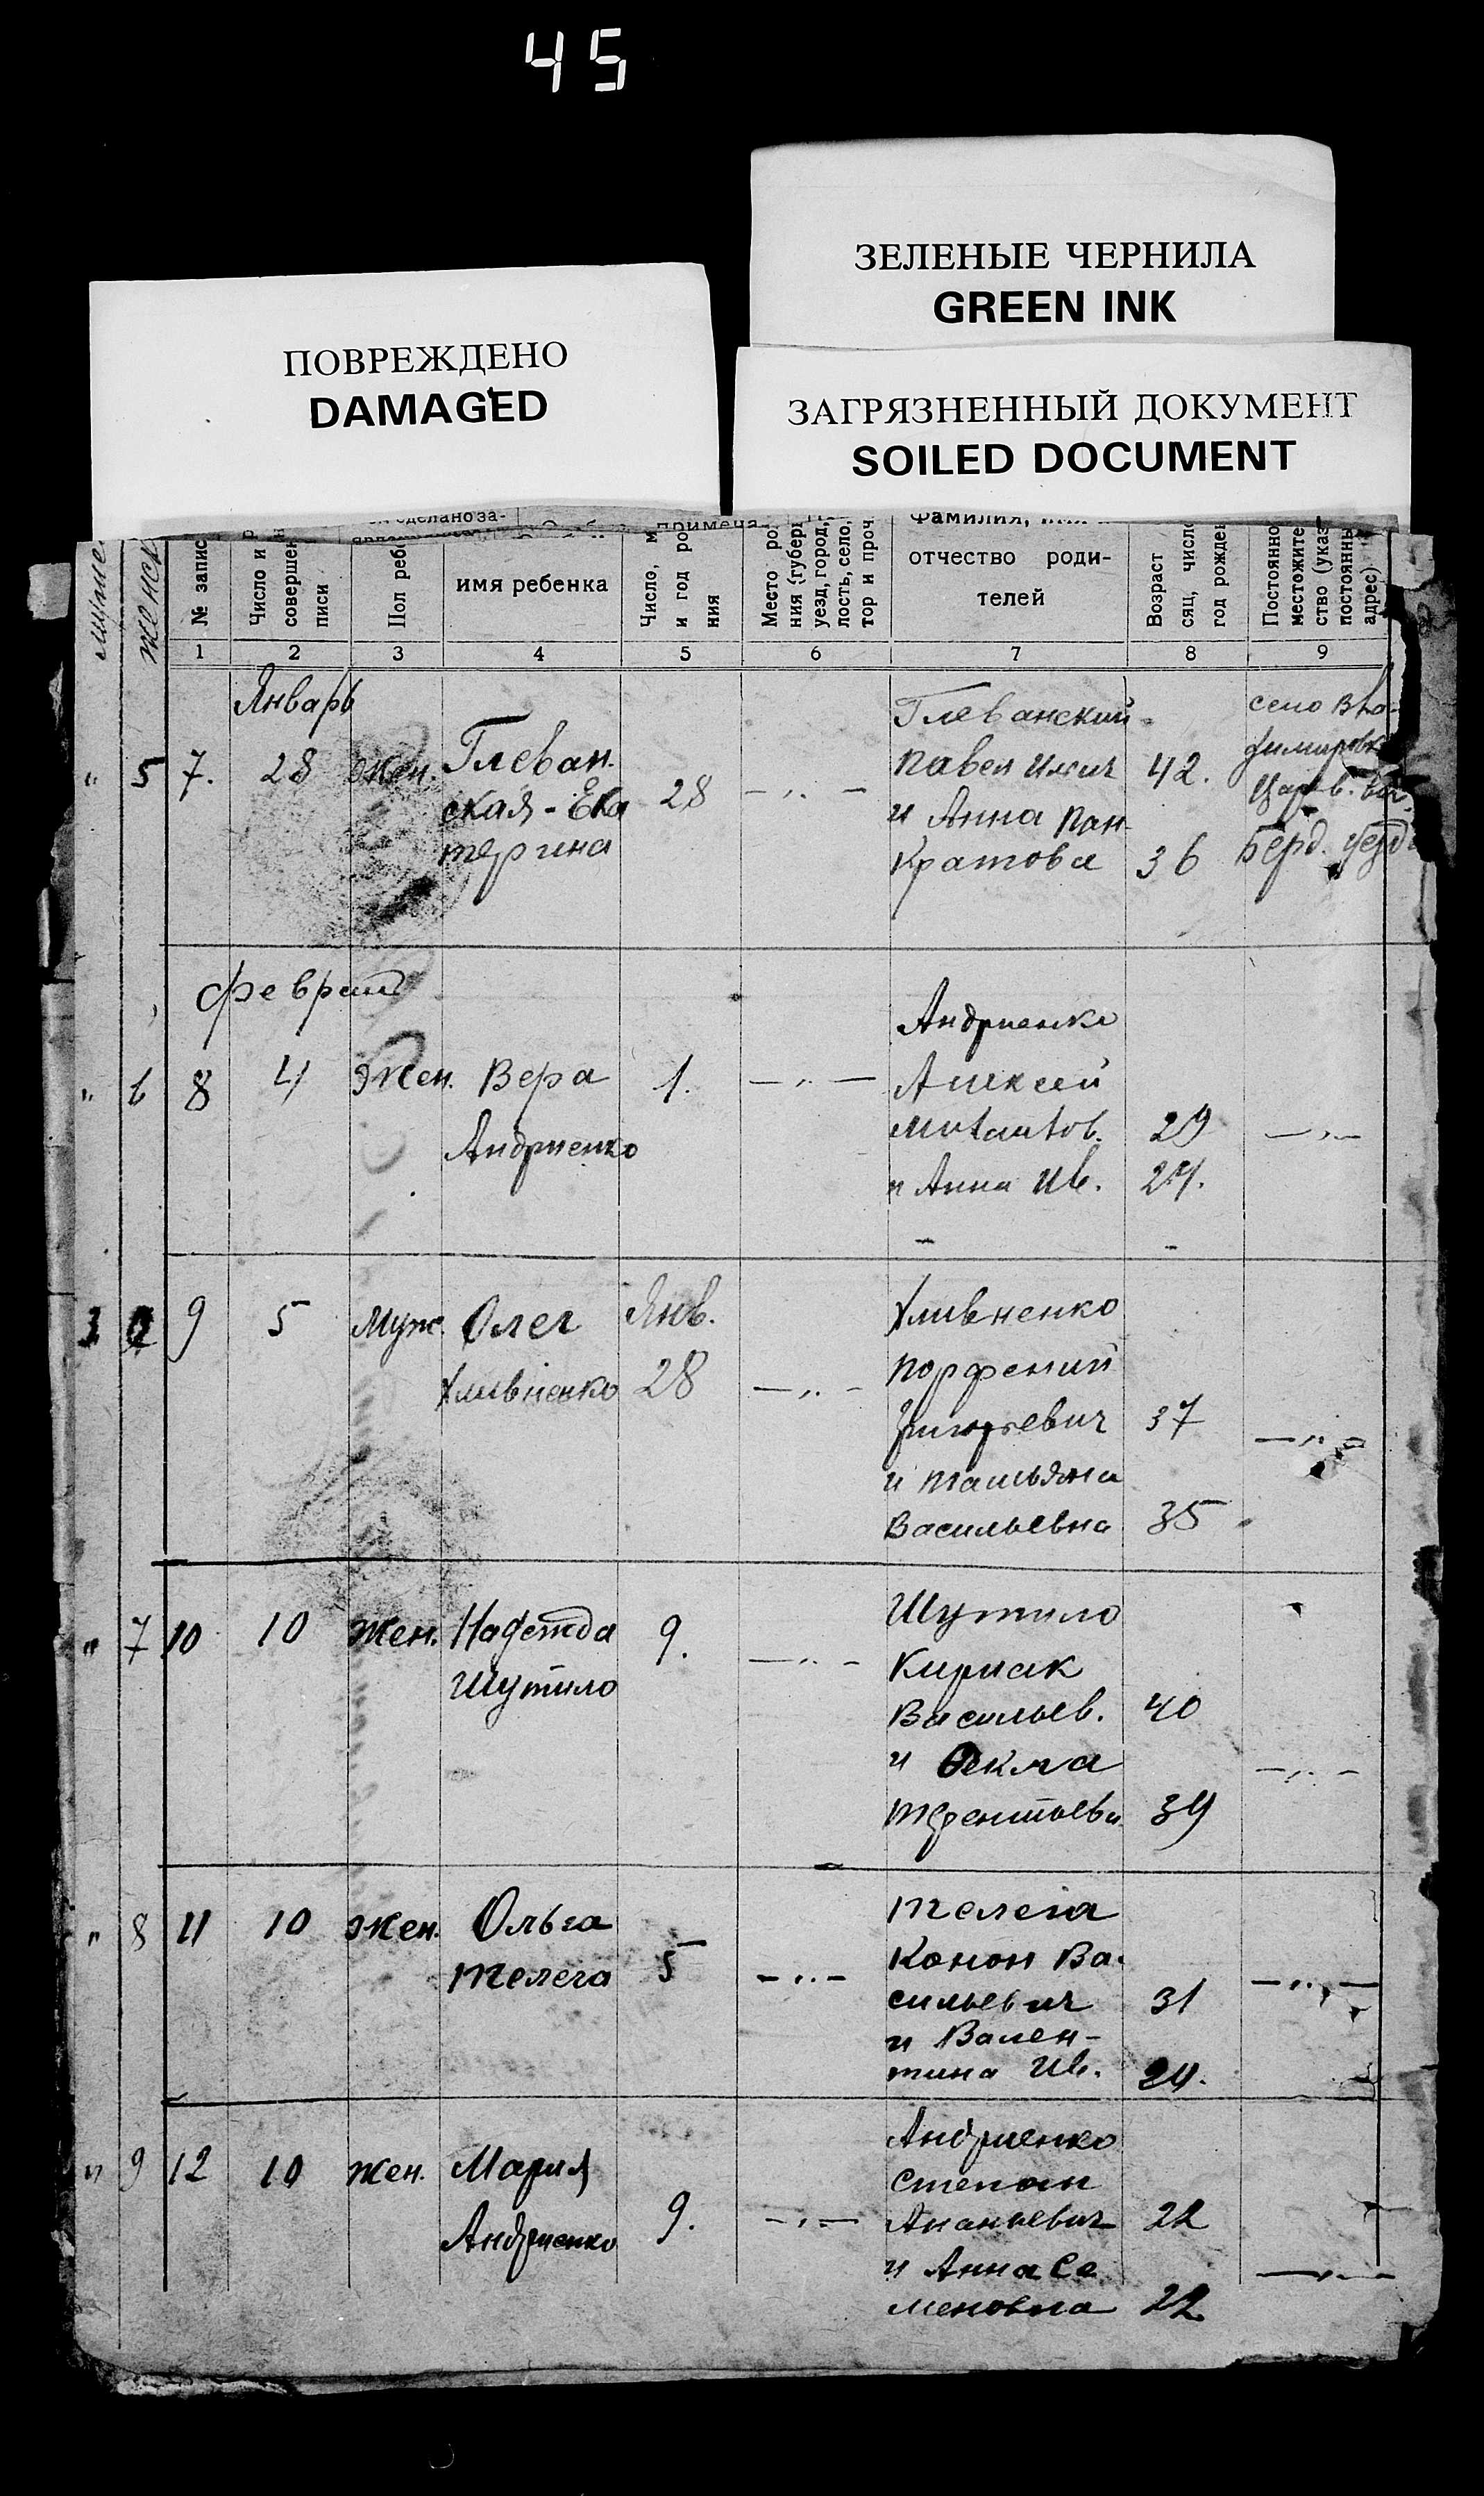 45
ЗЕЛЕНЫЕ ЧЕРНИЛА
GREEN INK
ПОВРЕЖДЕНО
DAMAGED
ЗАГРЯЗНЕННЫЙ ДОКУМЕНТ
SOILED DOCUMENT
женск
№ запис
Число и
совершен
писи
Пол реб
имя ребенка
Число, м
и год ро
ния
Место ро
ния (губер
уезд, город,
лость, село,
тор и проч
Фамилия,
отчество роди-
телей
Возраст
сяц, число
год рожден
Постоянно
местожите
ство (указ
постоянны
адрес)
1 2 3 4 5 6 7 8 9
Январь
" 5 7. 28 Жен. Глеван.
ская - Ека
терина
28 — " —
Глеванский
Павел Ильич 42.
и Анна Пан-
кратова 36
село Вла-
димировка
Берд. уезд
Февраль
" 6 8 4 Жен. Вера
Андриенко
1. — " —
Андриенко
Алексей
29
и Анна Ив. 24.
— " —
3 9 5 Муж. Олег
Хливненко
Янв.
28 — " —
Хливненко
Порфений
Григорьевич 37
и Татьяна
Васильевна 35
— " —
" 7 10 10 Жен. Надежда
Шутило
9. — " —
Шутило
Кириак
Васильев. 40
и Фекла
Терентьевн 39
— " —
" 8 11 10 Жен. Ольга
Телега
5 — " —
Телега
Конон Ва-
сильевич 31
и Вален-
тина Ив. 24.
— " —
" 9 12 10 Жен. Мария
Андриенко
9. — " —
Андриенко
Степан
Ананьевич 22
и Анна Се
меновна 22
— " —